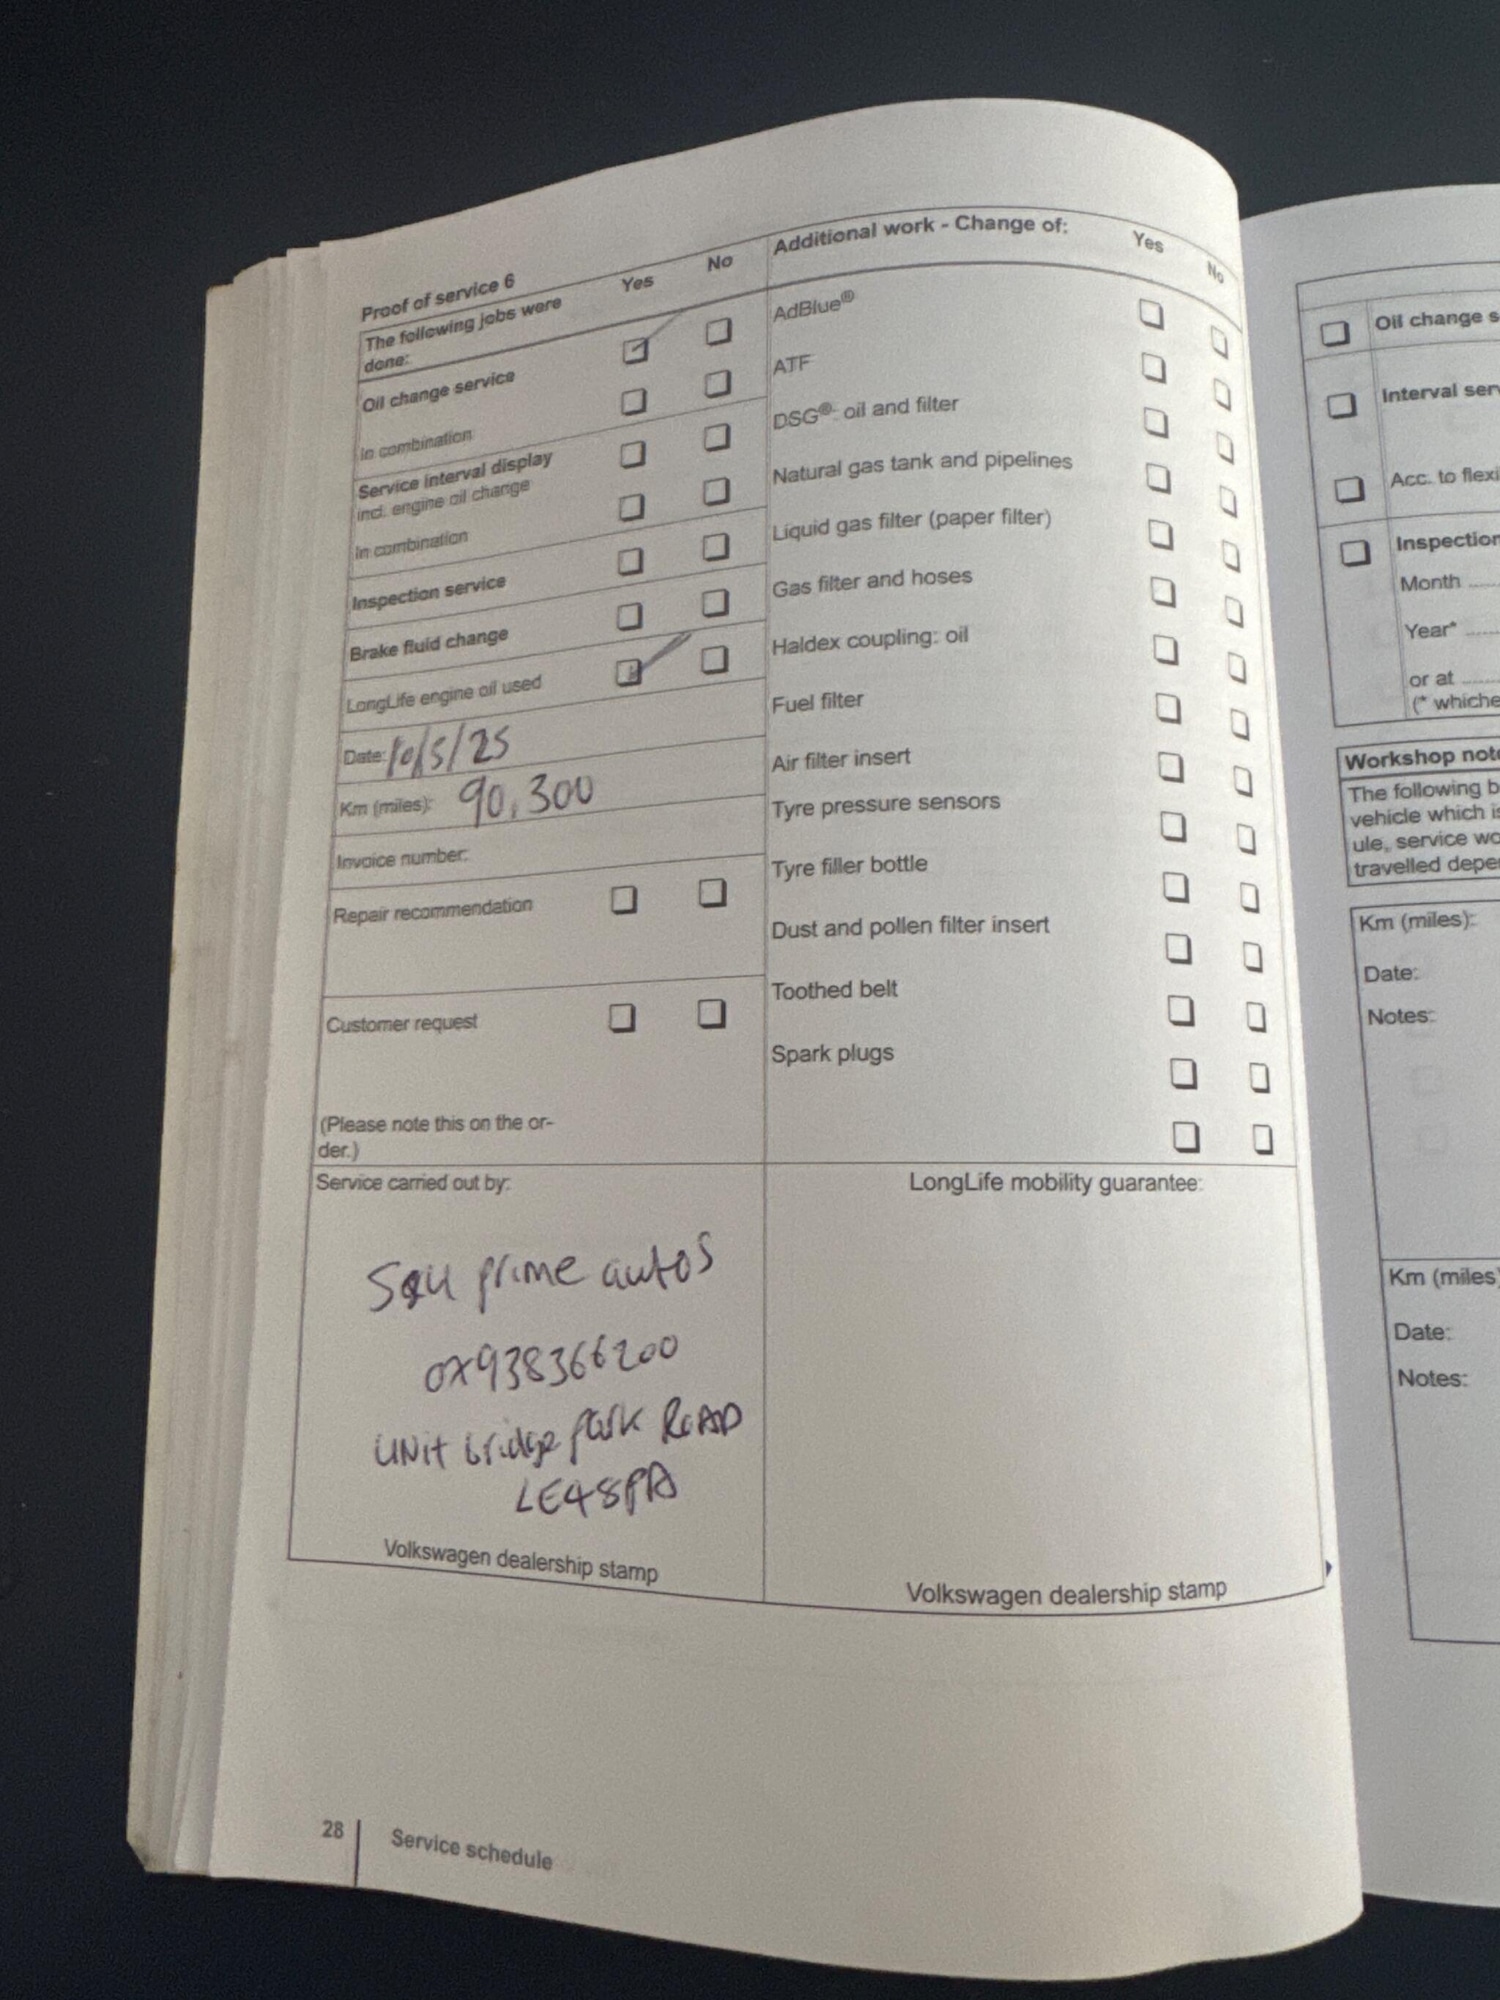 Proof of service 6
The following jobs were done:
Yes
No
Oil change service
In combination
Service interval display
incl. engine oil change
In combination
Inspection service
Brake fluid change
LongLife engine oil used
Date: 10/5/25
Km (miles): 90,300
Invoice number:
Repair recommendation
Customer request
(Please note this on the or-
der.)
Additional work - Change of:
Yes
No
AdBlue®
ATF
DSG®- oil and filter
Natural gas tank and pipelines
Liquid gas filter (paper filter)
Gas filter and hoses
Haldex coupling: oil
Fuel filter
Air filter insert
Tyre pressure sensors
Tyre filler bottle
Dust and pollen filter insert
Toothed belt
Spark plugs
Service carried out by:
prime autos
07938366200
UNit bridge park ROAD
LE48PA
Volkswagen dealership stamp
LongLife mobility guarantee:
Volkswagen dealership stamp
28
Service schedule
Oil change s
Interval ser
Acc. to flexi
Inspection
Month
Year*
or at
(* whiche
Workshop note
The following b
vehicle which is
ule, service wo
travelled depe
Km (miles):
Date:
Notes:
Km (miles)
Date:
Notes: